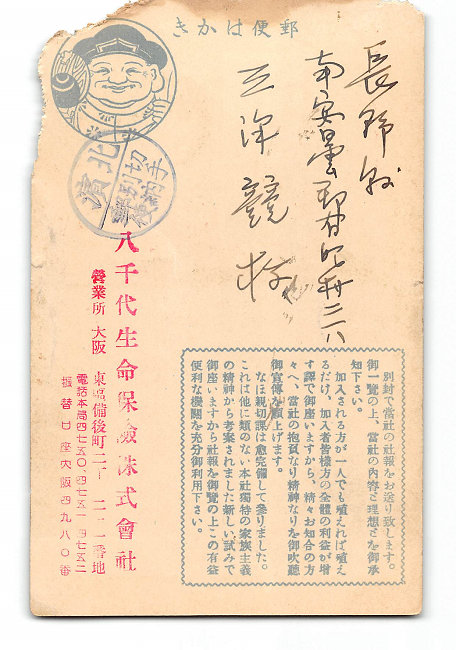 郵便はかき
長野縣
南安曇郡
三澤
別封で當社の社報をお送り致します。
御一覽の上、當社の內容と理想とを御承
知下さい。
加入される方が一人でも殖えれば殖え
るだけ、加入者皆樣方の全體の利益が增
す譯で御座いますから、精々お知合の方
々へ、當社の抱負なり精神なりを御吹聽
御宣傳を願上げます。
なほ親切課は愈完備して參りました。
これは他に類のない本社獨特の家族主義
の精神から考案されました新しい試みで
御座いますから社報を御覽の上この有益
便利な機關を充分御利用下さい。
八千代生命保險株式會社
營業所 大阪 東區備後町二丁 二二一番地
電話本局四七五〇 四七五一 四七五二
振替口座大阪四九八〇番
北濱
切手別納
郵便